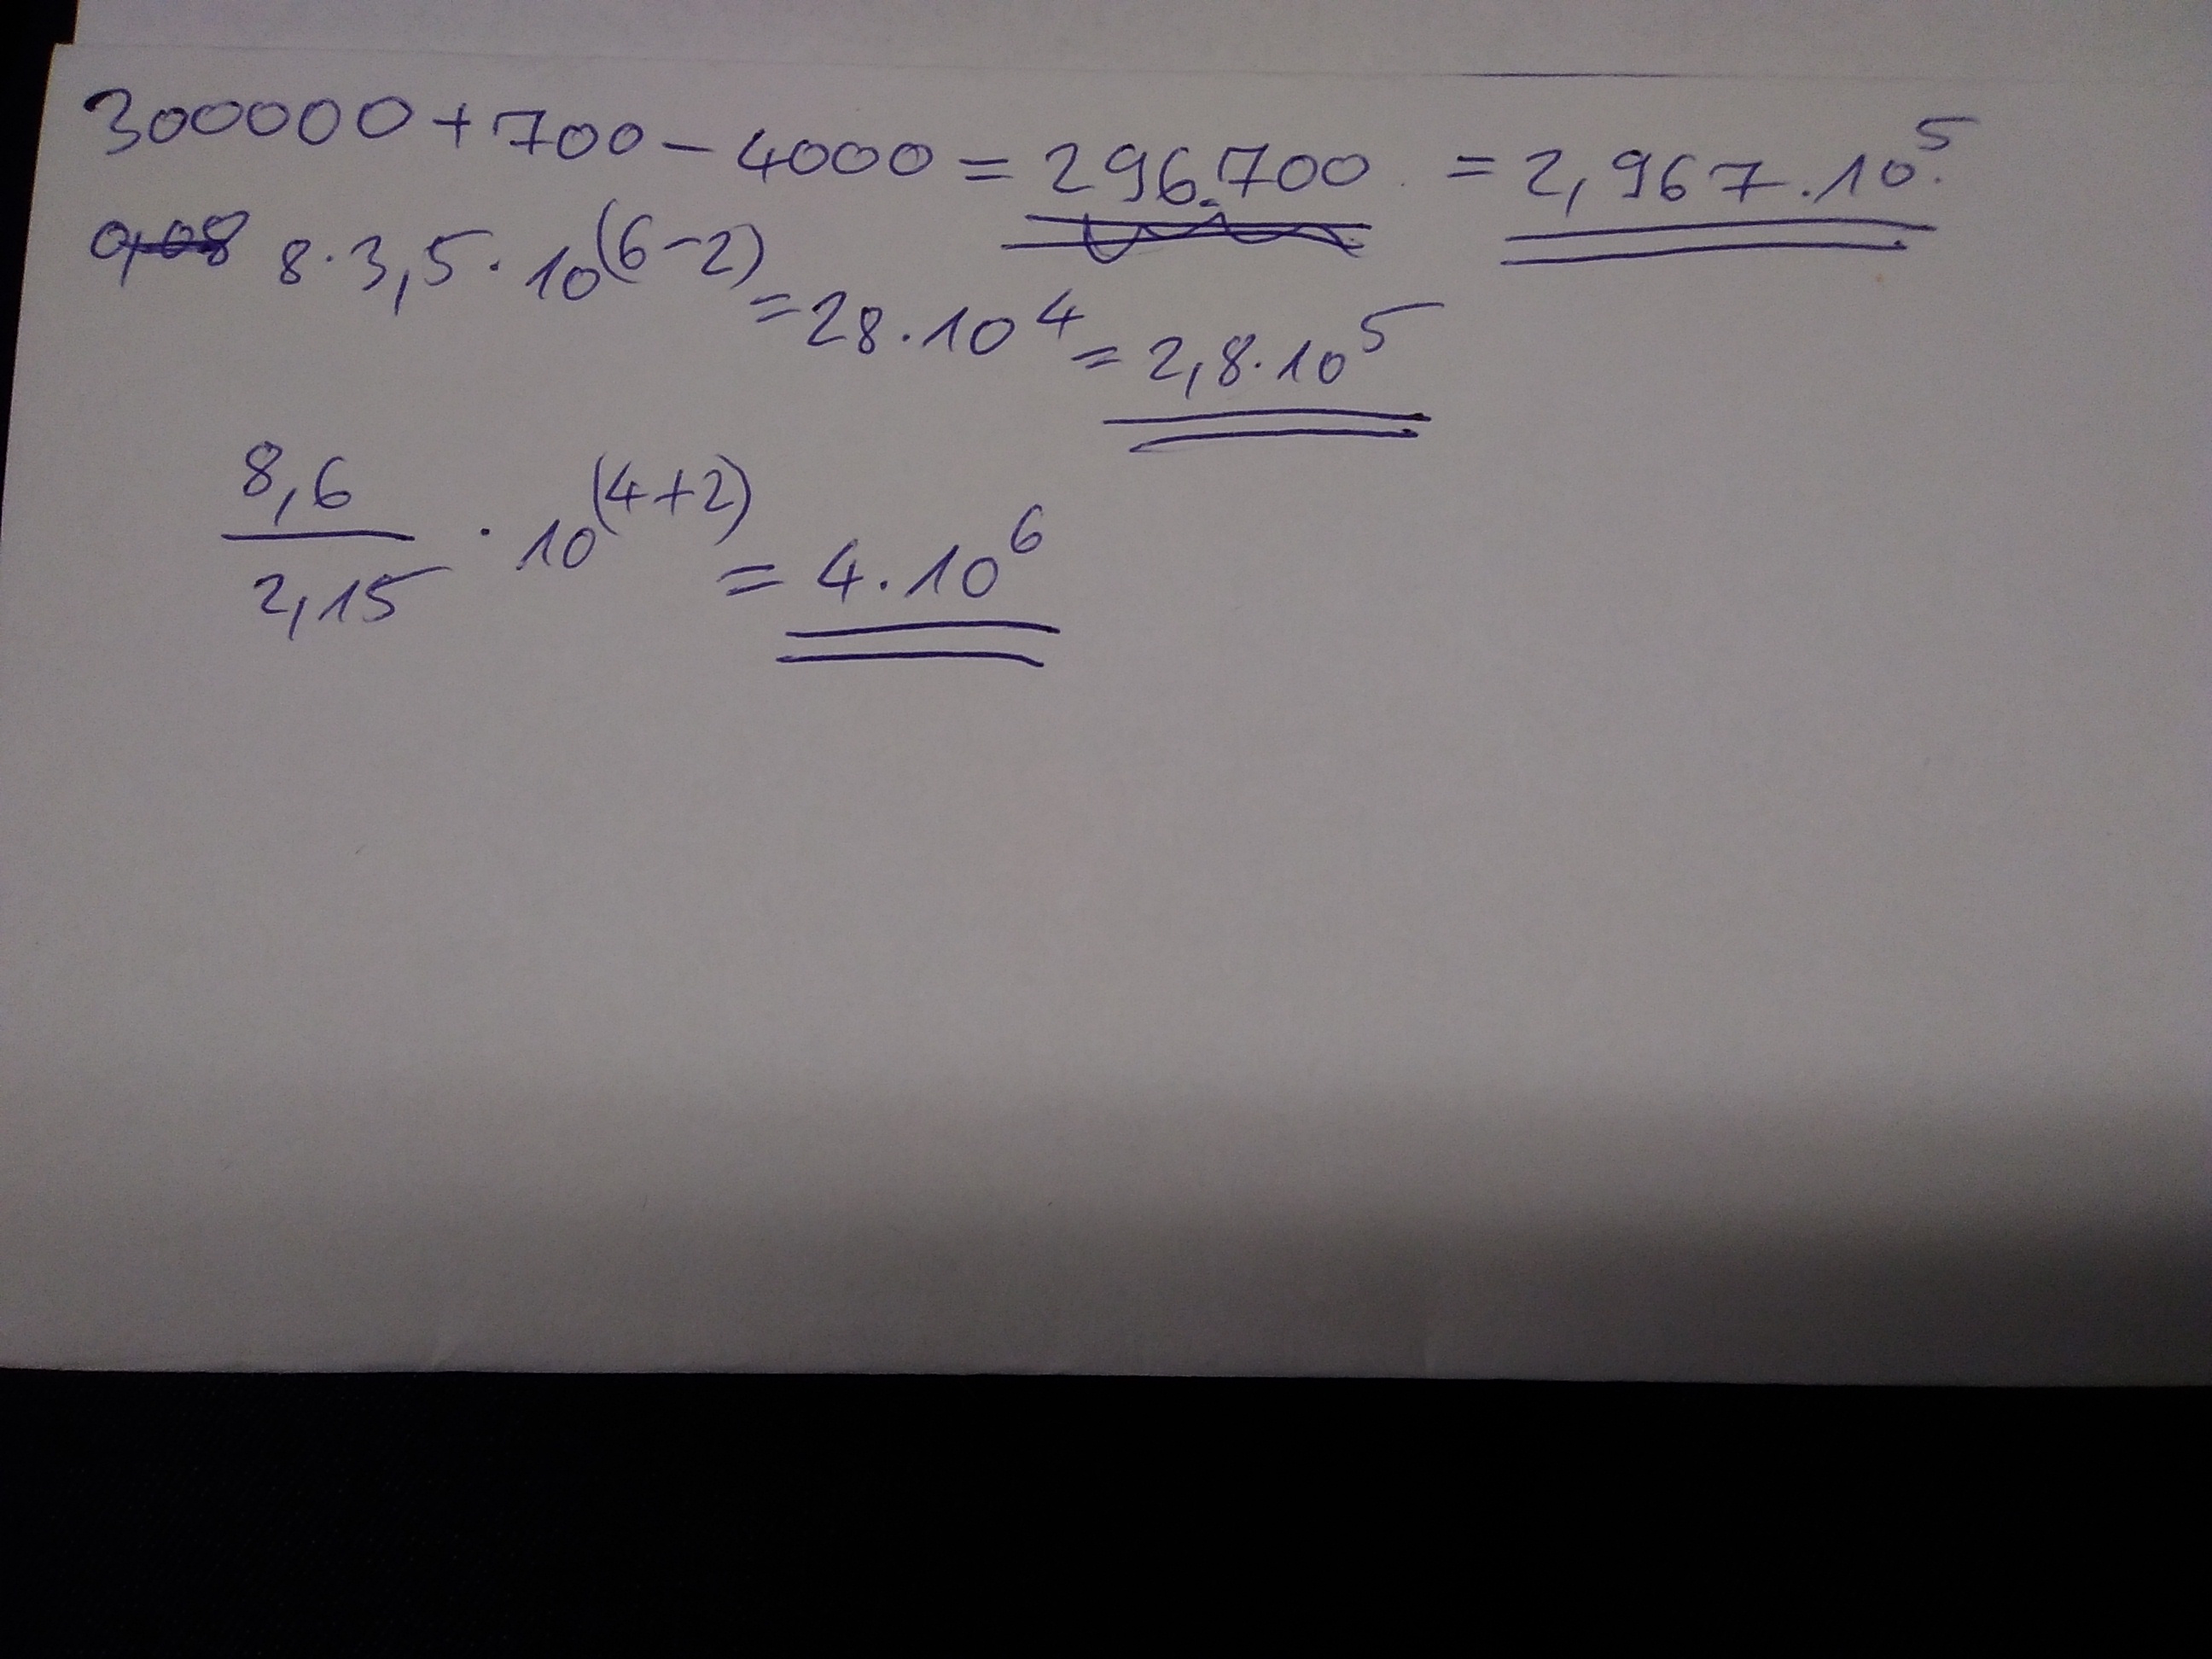 300000 + 700 - 4000 = 296.700 = 2,967 · 10^5
0,08 8 · 3,5 · 10^(6-2) = 28 · 10^4 = 2,8 · 10^5
8,6 / 2,15 · 10^(4+2) = 4 · 10^6